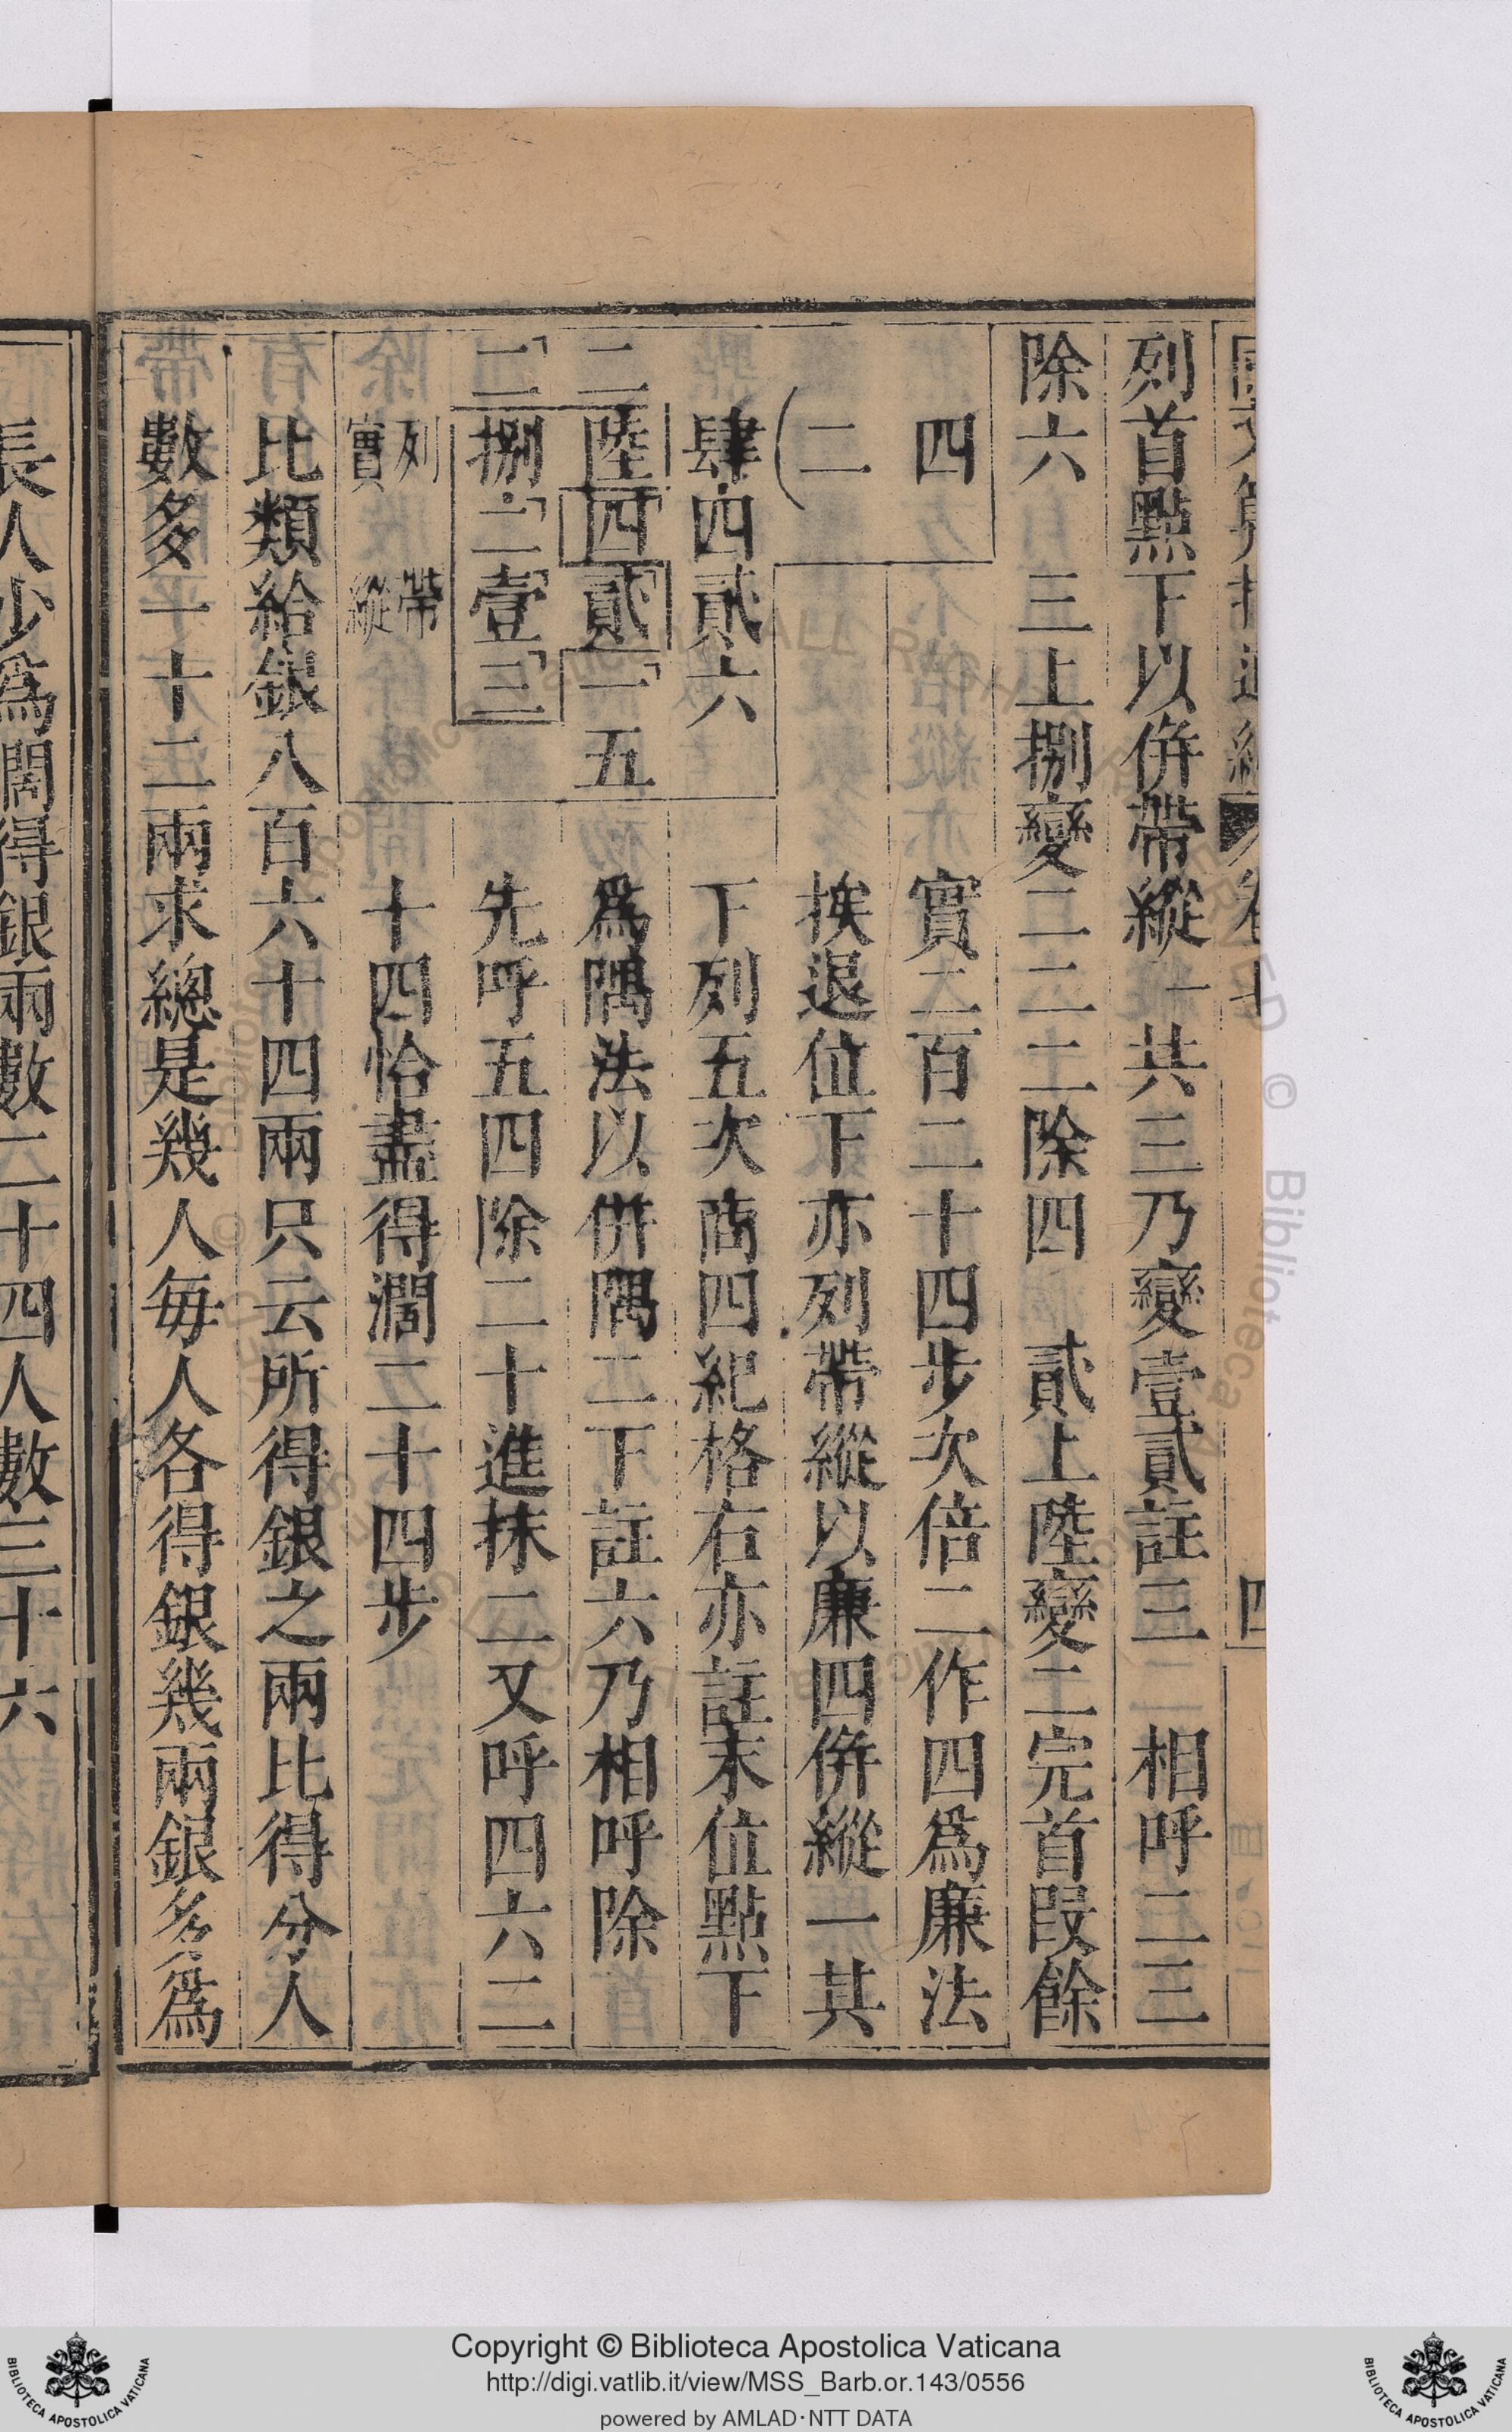 列首點下以併帶縱一共三乃變壹貳註三二相呼二三
除六 三上捌變二二二除四 貳上陸變二完首段餘
四 實二百二十四步次倍二作四爲廉法
二 挨退位下亦列帶縱以廉四併縱一其
肆四貳六 下列五次商四紀格右亦註末位點下
二陸四貳一五 爲隅法以併隅二下註六乃相呼除
二捌二壹三 先呼五四除二十進抹二又呼四六二
列實 帶縱 十四恰盡得濶二十四步
比類給銀八百六十四兩只云所得銀之兩比得分人
數多一十二兩求總是幾人每人各得銀幾兩銀多爲
長人少爲闊得銀兩數二十四人數三十六
四
Copyright © Biblioteca Apostolica Vaticana
http://digi.vatlib.it/view/MSS_Barb.or.143/0556
powered by AMLAD·NTT DATA
BIBLIOTECA APOSTOLICA VATICANA
BIBLIOTECA APOSTOLICA VATICANA